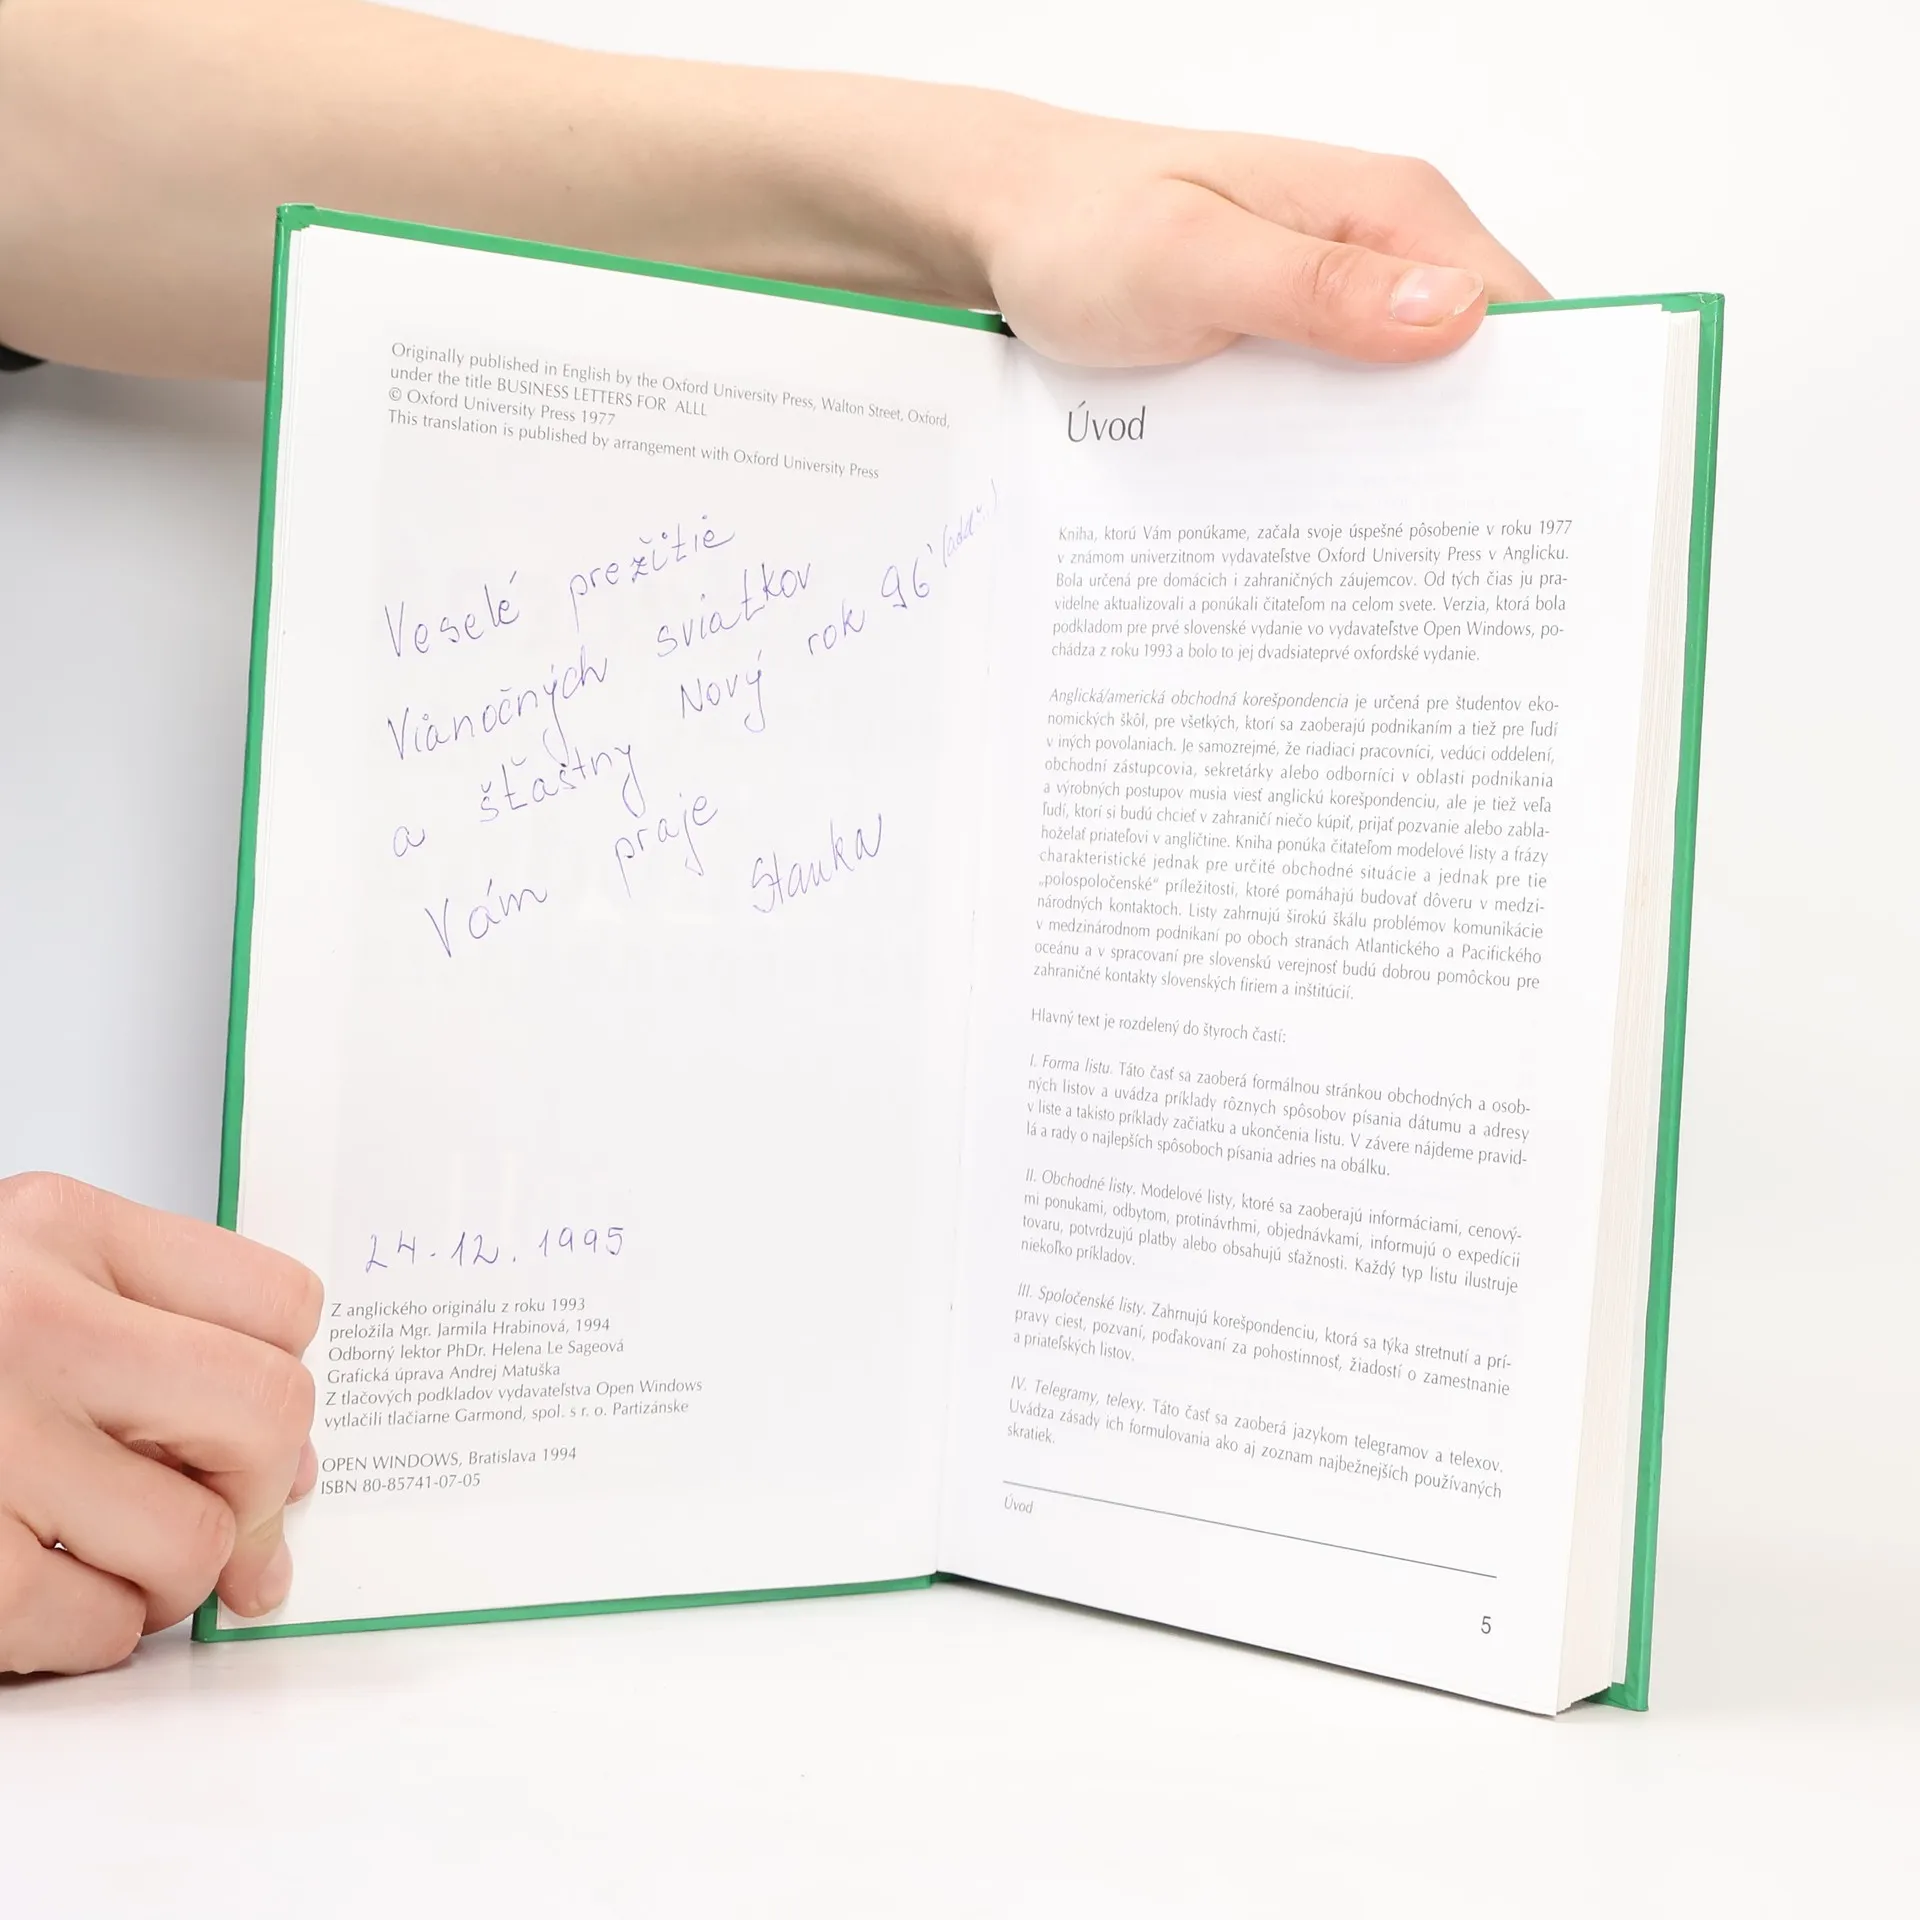 Originally published in English by the Oxford University Press, Walton Street, Oxford,
under the title BUSINESS LETTERS FOR ALLL
© Oxford University Press 1977
This translation is published by arrangement with Oxford University Press
Veselé prežitie
Vianočných sviatkov
a šťastný Nový rok 96'
Vám praje
Stanka
24.12.1995
Z anglického originálu z roku 1993
preložila Mgr. Jarmila Hrabinová, 1994
Odborný lektor PhDr. Helena Le Sageová
Grafická úprava Andrej Matuška
Z tlačových podkladov vydavateľstva Open Windows
vytlačili tlačiarne Garmond, spol. s r. o. Partizánske
OPEN WINDOWS, Bratislava 1994
ISBN 80-85741-07-05
Úvod
Kniha, ktorú Vám ponúkame, začala svoje úspešné pôsobenie v roku 1977
v známom univerzitnom vydavateľstve Oxford University Press v Anglicku.
Bola určená pre domácich i zahraničných záujemcov. Od tých čias ju pra-
videlne aktualizovali a ponúkali čitateľom na celom svete. Verzia, ktorá bola
podkladom pre prvé slovenské vydanie vo vydavateľstve Open Windows, po-
chádza z roku 1993 a bolo to jej dvadsiateprvé oxfordské vydanie.
Anglická/americká obchodná korešpondencia je určená pre študentov eko-
nomických škôl, pre všetkých, ktorí sa zaoberajú podnikaním a tiež pre ľudí
v iných povolaniach. Je samozrejmé, že riadiaci pracovníci, vedúci oddelení,
obchodní zástupcovia, sekretárky alebo odborníci v oblasti podnikania
a výrobných postupov musia viesť anglickú korešpondenciu, ale je tiež veľa
ľudí, ktorí si budú chcieť v zahraničí niečo kúpiť, prijať pozvanie alebo zabla-
hoželať priateľovi v angličtine. Kniha ponúka čitateľom modelové listy a frázy
charakteristické jednak pre určité obchodné situácie a jednak pre tie
„polospoločenské“ príležitosti, ktoré pomáhajú budovať dôveru v medzi-
národných kontaktoch. Listy zahrnujú širokú škálu problémov komunikácie
v medzinárodnom podnikaní po oboch stranách Atlantického a Pacifického
oceánu a v spracovaní pre slovenskú verejnosť budú dobrou pomôckou pre
zahraničné kontakty slovenských firiem a inštitúcií.
Hlavný text je rozdelený do štyroch častí:
I. Forma listu. Táto časť sa zaoberá formálnou stránkou obchodných a osob-
ných listov a uvádza príklady rôznych spôsobov písania dátumu a adresy
v liste a takisto príklady začiatku a ukončenia listu. V závere nájdeme pravid-
lá a rady o najlepších spôsoboch písania adries na obálku.
II. Obchodné listy. Modelové listy, ktoré sa zaoberajú informáciami, cenový-
mi ponukami, odbytom, protinávrhmi, objednávkami, informujú o expedícii
tovaru, potvrdzujú platby alebo obsahujú sťažnosti. Každý typ listu ilustruje
niekoľko príkladov.
III. Spoločenské listy. Zahrnujú korešpondenciu, ktorá sa týka stretnutí a prí-
pravy ciest, pozvaní, poďakovaní za pohostinnosť, žiadostí o zamestnanie
a priateľských listov.
IV. Telegramy, telexy. Táto časť sa zaoberá jazykom telegramov a telexov.
Uvádza zásady ich formulovania ako aj zoznam najbežnejších používaných
skratiek.
Úvod
5